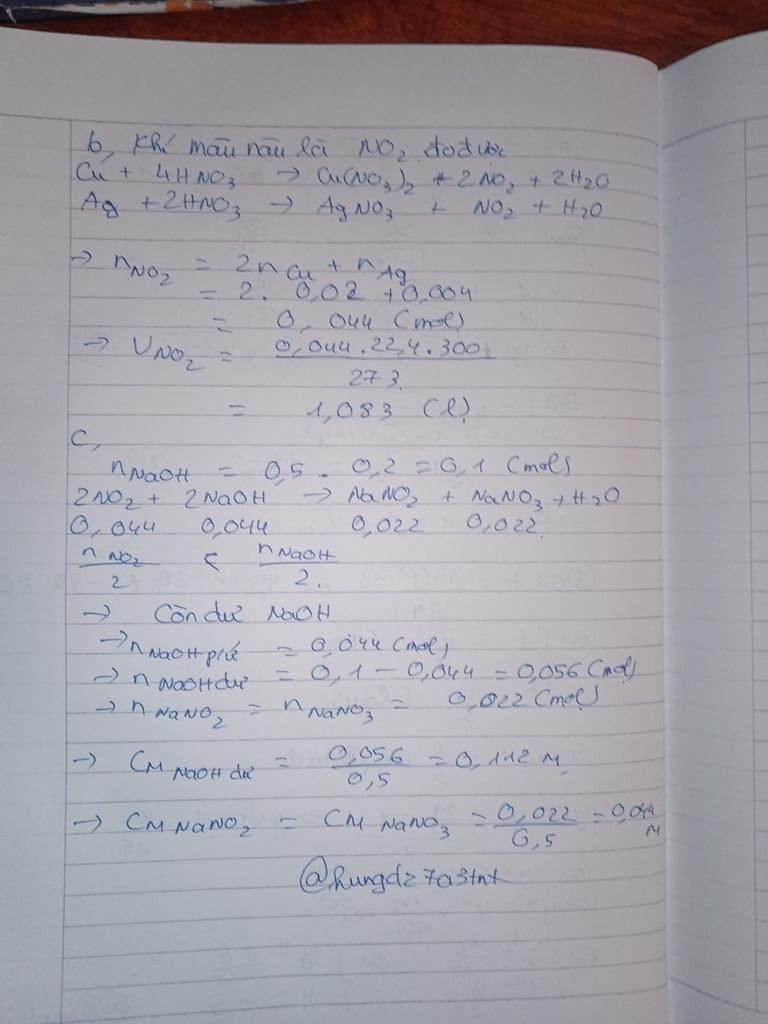 b, Khí màu nâu là NO₂ đo được
Cu + 4HNO₃ → Cu(NO₃)₂ + 2NO₂ + 2H₂O
Ag + 2HNO₃ → AgNO₃ + NO₂ + H₂O
→ nNO₂ = 2nCu + nAg
= 2. 0,02 + 0,004
= 0,044 (mol)
→ VNO₂ = 0,044.22,4.300 / 273
= 1,083 (l)
c,
nNaOH = 0,5 . 0,2 = 0,1 (mol)
2NO₂ + 2NaOH → NaNO₂ + NaNO₃ + H₂O
0,044 0,044 0,022 0,022
nNO₂ / 2 < nNaOH / 2.
→ Còn dư NaOH
→ nNaOH pứ = 0,044 (mol)
→ nNaOH dư = 0,1 - 0,044 = 0,056 (mol)
→ nNaNO₂ = nNaNO₃ = 0,022 (mol)
→ CM NaOH dư = 0,056 / 0,5 = 0,112 M
→ CM NaNO₂ = CM NaNO₃ = 0,022 / 0,5 = 0,044 M
@hungdz7a3tnt